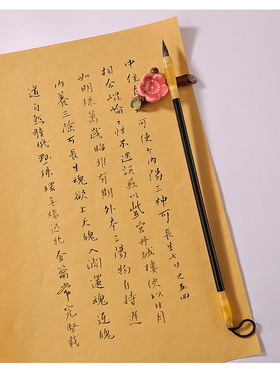 中住 可使令内陽三神可長生七日之五回
相合崑崙之性不迷誤欺以此宮丹城樓使以日月
如明珠萬歲昭非有期外本三陽物自
内養三陰可長生魂欲上天魄入淵還魂返魄
道自然璇璣珠環無端迅牝金籥常完堅載